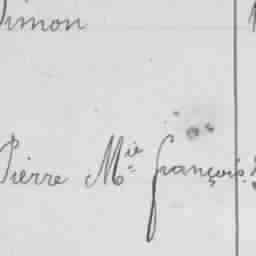 Simon
Pierre Mie François